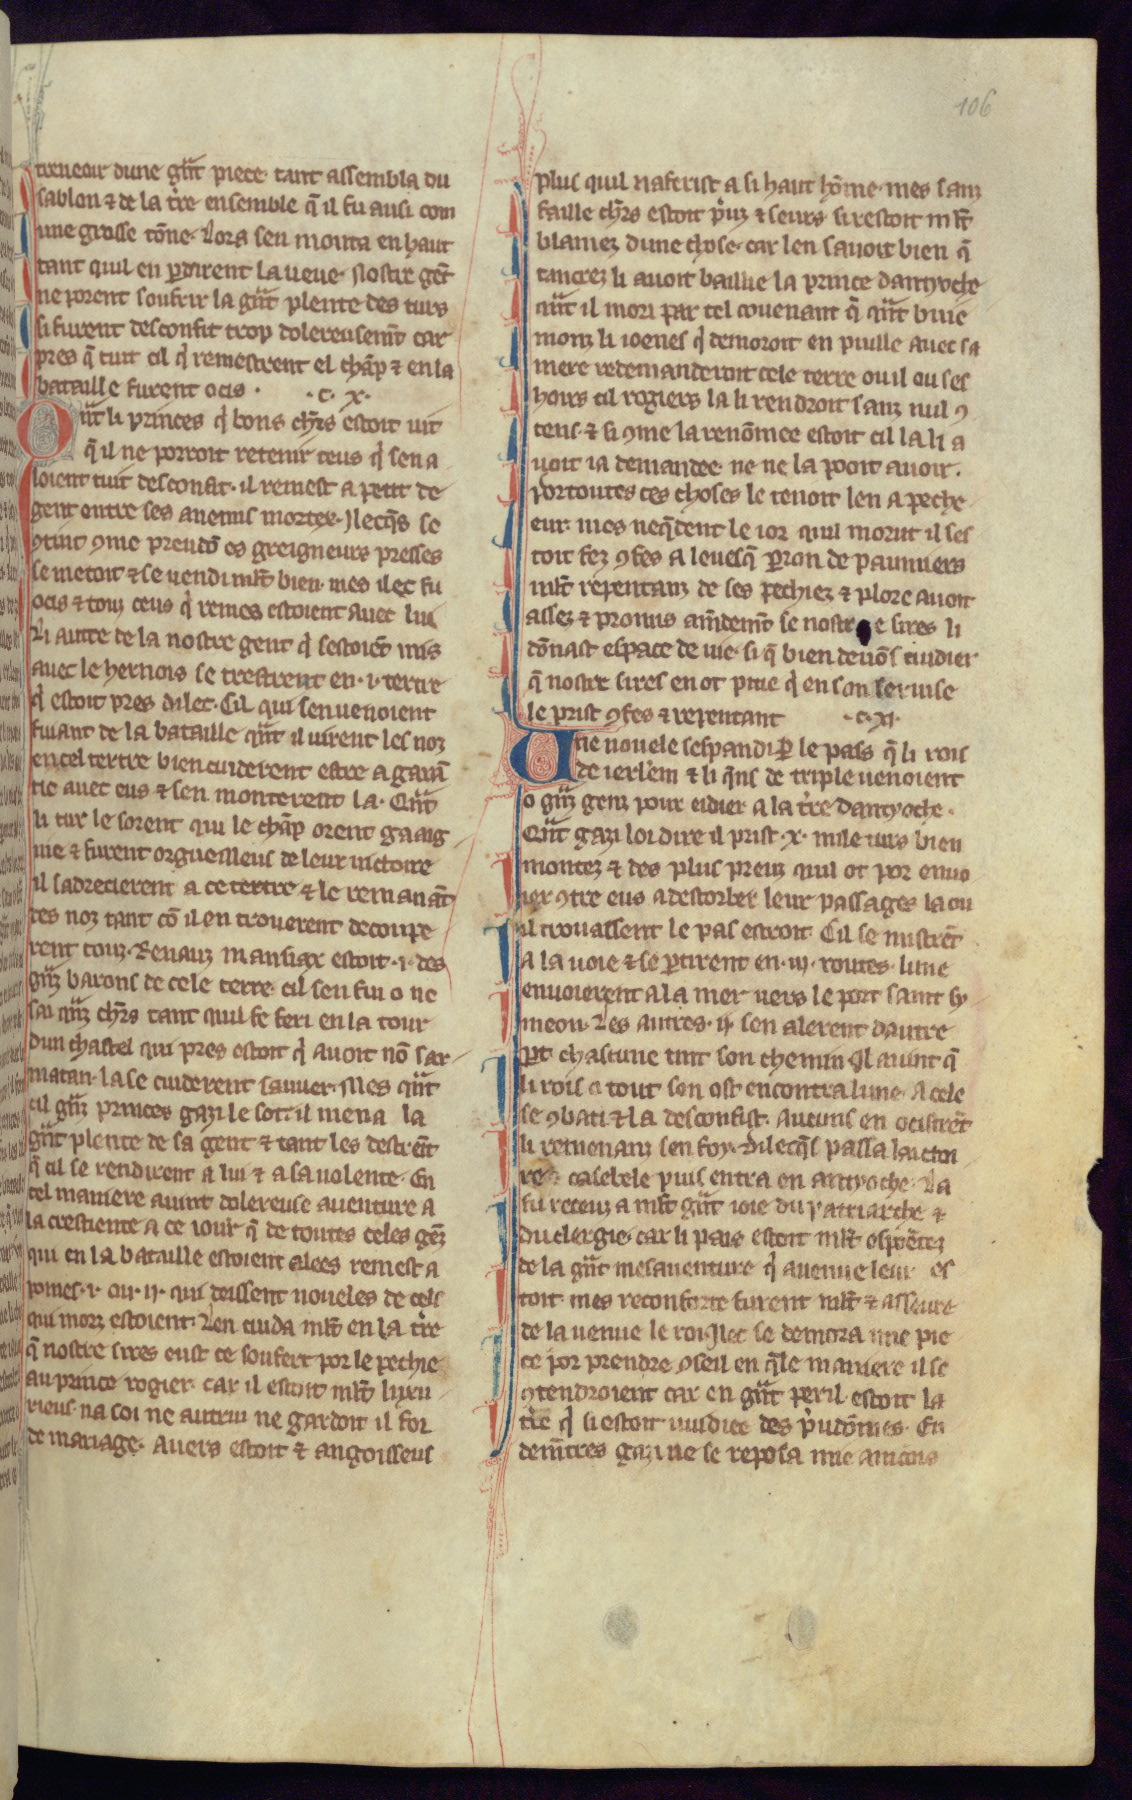 106
treneour dune gͣnt piece. tant assembla du
sablon ⁊ de la tͥre ensemble q̄ il fu ausi com
une grosse tōne. Lors sen monta en haut
tant quil en ꝑdirent la ueue. Nostre gēt
ne porent soufrir la gͣnt plente des turs
si furent desconfit trop dolereusemt̄ car
pres q̄ tuit cil q̇ remestrent el chāp ⁊ en la
bataille furent ocis . .c. x.
Qͣnt li princes q̇ bons chr̄s estoit uit
q̄ il ne porroit retenir ceus q̇ sen a
loient tuit desconfit. il remest a petit de
gent entre ses anemis mortex. Jlecq̄s se
ꝯtint ꝯme preudō es greigneurs presses
se metoit ⁊ se uendi ml̄t bien. mes ilec fu
ocis ⁊ touz ceus q̇ remes estoient auec lui
Li autre de la nostre gent q̇ sestoiēt mis
auec le hernois se trestrent en .i. tertre
q̇ estoit pres dilec. Cil qui senuenoient
fuiant de la bataille qͣnt il uirent les noz
en cel tertre bien cuiderent estre a garā
tie auec eus ⁊ sen monterent la. Qͣnt
li turc le sorent qui le chāp orent gaaig
nie ⁊ furent orgueilleus de leur uictoire
il sadrecierent a ce tertre ⁊ le remanāt
des noz tant cō il en trouerent decoupe
rent touz. Renauz mansiax estoit .i. des
gͣnz barons de cele terre. cil sen fui o ne
sai qͣnz chr̄s tant quil se feri en la tour
dun chastel qui pres estoit q̇ auoit nō sar
matan. la se cuiderent sauuer. Mes qͣnt
cil gͣnz princes gazi le sot. il mena la
gͣnt plente de sa gent ⁊ tant les destreīt
q̄ cil se rendirent a lui ⁊ a sa uolente. En
tel maniere auint dolereuse auenture a
la crestiente a ce iour q̄ de toutes celes gēz
qui en la bataille estoient alees remest a
poines .i. ou .ii. qui deissent noueles de cels
qui morz estoient. Len cuida ml̄t en la tͥre
q̄ nostre sires eust ce soufert por le pechie
au prince rogier. car il estoit ml̄t luxu
rieus. na soi ne autrui ne gardoit il foi
de mariage. Auers estoit ⁊ angoisseus
plus quil naferist a si haut hōme. mes sanz
faille chr̄s estoit ṗuz ⁊ seurs. si restoit ml̄t
blamez dune chose. car len sauoit bien q̄
tancrez li auoit baillie la prince dantyoche
qͣnt il mori par tel couenant q̄ qͣnt buie
monz li ioenes q̇ demoroit en puille auec sa
mere redemanderoit cele terre ou il ou ses
hoirs cil rogiers la li rendroit sanz nul ꝯ
tens. ⁊ si ꝯme la renōmee estoit cil la li a
uoit ia demandee. ne ne la pooit auoir.
Por toutes ces choses le tenoit len a peche
eur. mes neq̄dent le ior quil morut il ses
toit fez ꝯfes a leuesq̄ ꝑron de paumiers
ml̄t repentanz de ses pechiez ⁊ plore auoit
assez ⁊ promis amdemt̄ se nostre sires li
dōnast espace de uie. si q̄ bien deuōs cuidier
q̄ nostre sires en ot pitie q̇ en son seruise
le prist ꝯfes ⁊ repentant .c. xi.
Une nouele sespandi ꝑ le pais q̄ li rois
de ierl̄em ⁊ li q̄ns de triple uenoient
o gͣnz genz pour eidier a la tͥre dantyoche.
Qͣnt gazi loi dire il prist .x. mile turs bien
montez ⁊ des plus preuz quil ot por enuo
ier ꝯtre eus a destorber leur passages la ou
il trouassent le pas estroit. Cil se mistrēt
a la uoie ⁊ se ꝑtirent en .iij. routes. lune
enuoierent a la mer uers le port saint sy
meon. Les autres .ii. sen alerent dautre
ꝑt. chascune tint son chemin. Jl auint q̄
li rois a tout son ost encontra lune. A cele
se ꝯbati ⁊ la desconfist. aucuns en ocistrēt
li remenanz sen foy. Dilecq̄s passa laictoi
re casebele puis entra en antyoche. La
fu receuz a ml̄t gͣnt ioie du patriarche ⁊
du clergie. car li pais estoit ml̄t espoētez
de la gͣnt mesauenture q̇ auenue leur es
toit. mes reconforte furent ml̄t ⁊ asseure
de la uenue le roi. Jlec se demora une pie
ce por prendre ꝯseil en q̄le maniere il se
ꝯtendroient car en gͣnt peril estoit la
tͥre q̇ si estoit uuidiee des ṗudōmes. En
demt̄res gazi ne se reposa mie aincois